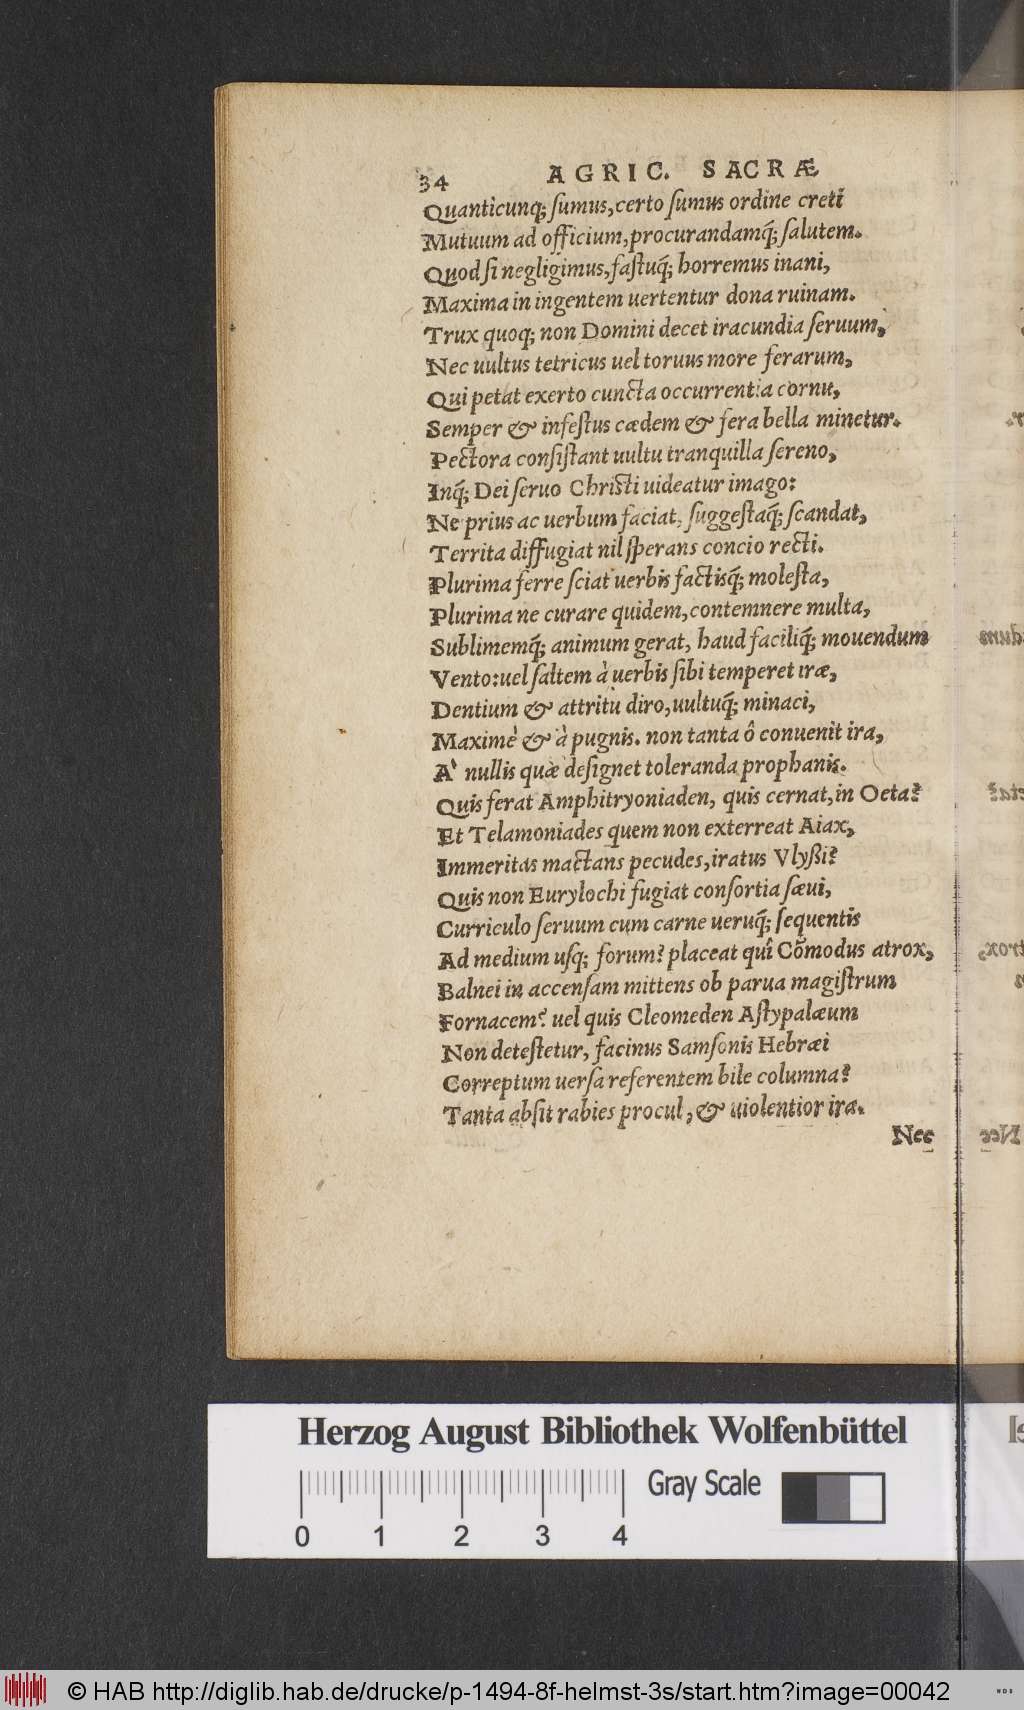 34 AGRIC. SACRÆ
Quanticunq; sumus, certo sumus ordine creti
Mutuum ad officium, procurandamq́; salutem.
Quod si negligimus, fastuq́; horremus inani,
Maxima in ingentem uertentur dona ruinam.
Trux quoq; non Domini decet iracundia seruum,
Nec uultus tetricus uel toruus more ferarum,
Qui petat exerto cuncta occurrentia cornu,
Semper & infestus cædem & fera bella minetur.
Pectora consistant uultu tranquilla sereno,
Inq́; Dei seruo Christi uideatur imago:
Ne prius ac uerbum faciat, suggestaq́; scandat,
Territa diffugiat nil sperans concio recti.
Plurima ferre sciat uerbis factisq́; molesta,
Plurima ne curare quidem, contemnere multa,
Sublimemq́; animum gerat, haud faciliq́; mouendum
Vento: uel saltem à uerbis sibi temperet iræ,
Dentium & attritu diro, uultuq́; minaci,
Maximè & à pugnis. non tanta ô conuenit ira,
A' nullis quæ designet toleranda prophanis.
Quis ferat Amphitryoniaden, quis cernat, in Oeta?
Et Telamoniades quem non exterreat Aiax,
Immeritas mactans pecudes, iratus Vlyßi?
Quis non Eurylochi fugiat consortia sæui,
Curriculo seruum cum carne ueruq́; sequentis
Ad medium usq; forum? placeat quî Cõmodus atrox,
Balnei in accensam mittens ob parua magistrum
Fornacem? uel quis Cleomeden Astypalæum
Non detestetur, facinus Samsonis Hebræi
Correptum uersa referentem bile columna?
Tanta absit rabies procul, & uiolentior ira.
Nec
Herzog August Bibliothek Wolfenbüttel
Gray Scale
0 1 2 3 4
© HAB http://diglib.hab.de/drucke/p-1494-8f-helmst-3s/start.htm?image=00042